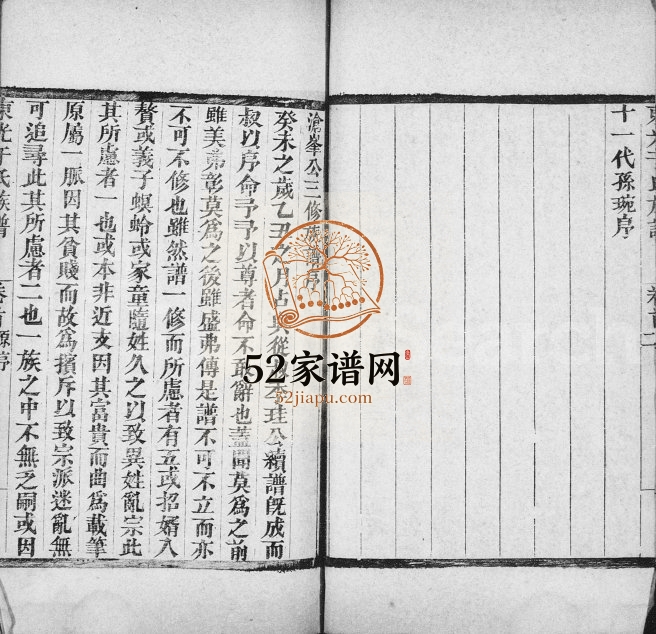 十一代孫琬序
滄峯公三修族譜序
癸未之歲乙丑之月占與從叔李珪公續譜旣成而
叔以序命予予以尊者命不敢辭也蓋聞莫爲之前
雖美弗彰莫爲之後雖盛弗傳是譜不可不立而亦
不可不修也雖然譜一修而所慮者有五或招婿入
贅或義子螟蛉或家童隨姓久之以致異姓亂宗此
其所慮者一也或本非近支因其富貴而曲爲載筆
原屬一脈因其貧賤而故爲擯斥以致宗派迷亂無
可追尋此其所慮者二也一族之中不無乏嗣或因
東光于氏族譜
卷首原序
52家谱网
52jiapu.com